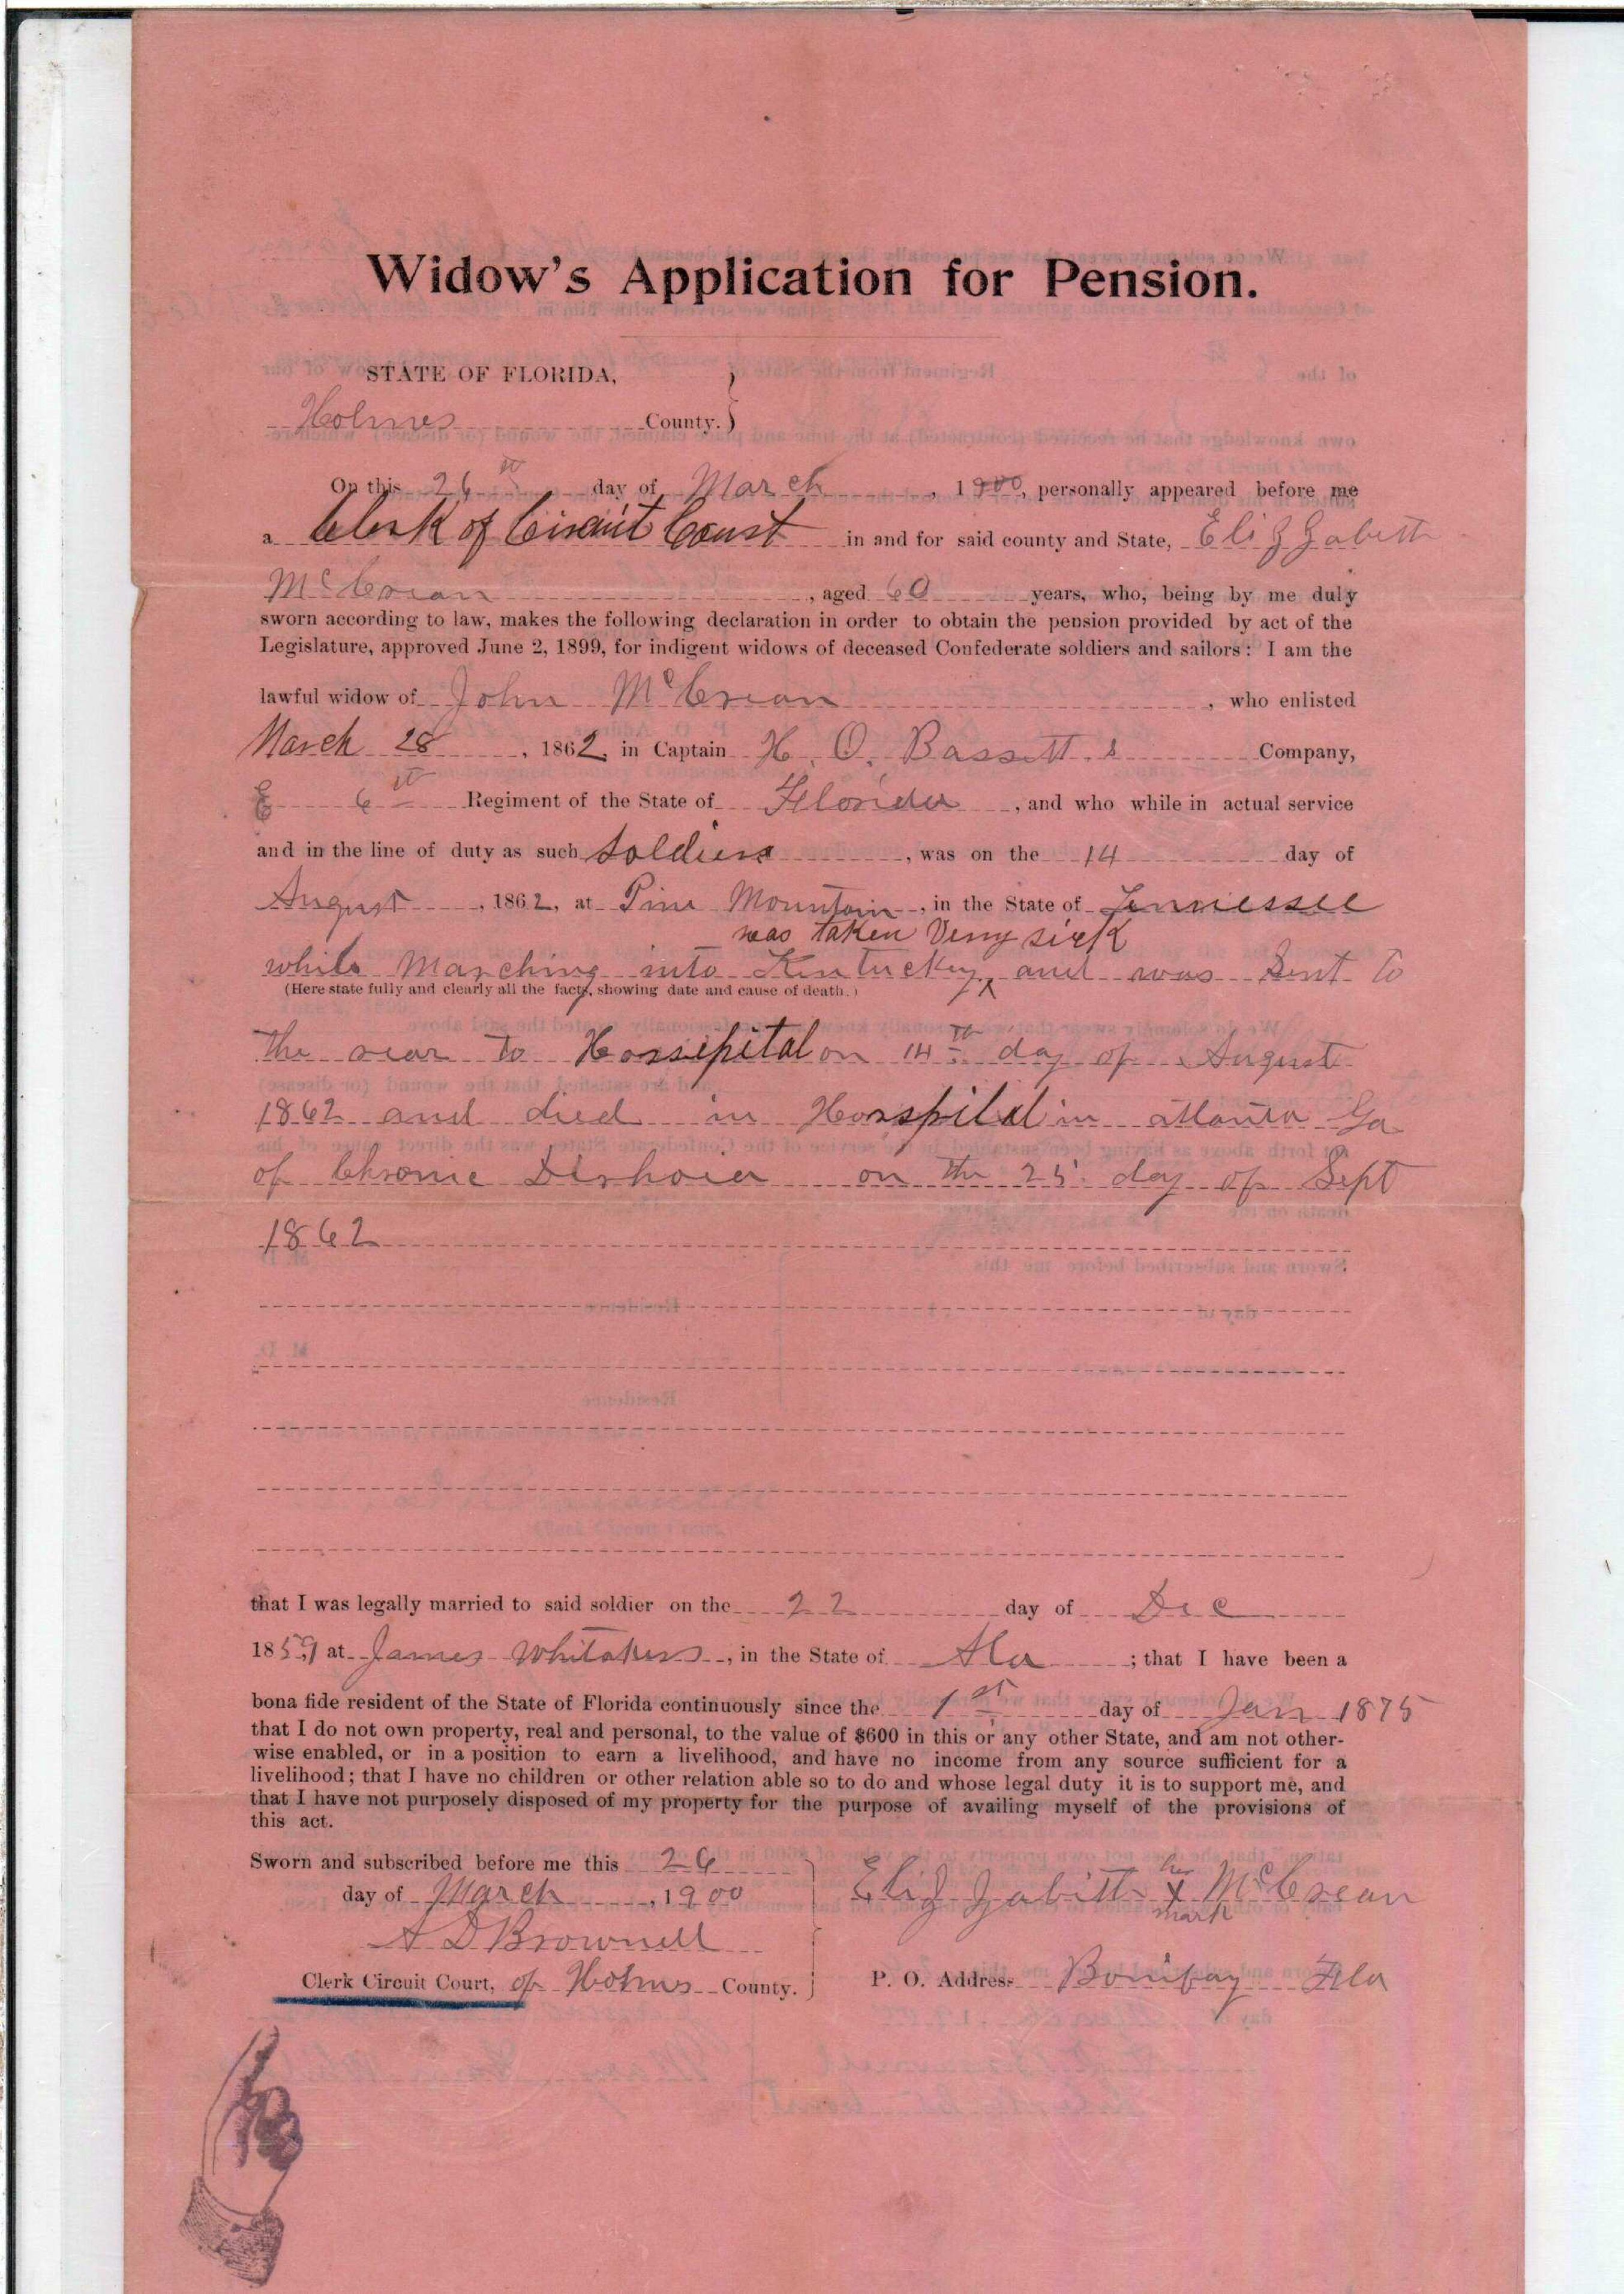 Widow's Application for Pension.
STATE OF FLORIDA,
Holmes County.
On this 26th day of March, 1900, personally appeared before me
a Clerk of Circuit Court in and for said county and State, Elizzabeth
McCrean, aged 60 years, who, being by me duly
sworn according to law, makes the following declaration in order to obtain the pension provided by act of the
Legislature, approved June 2, 1899, for indigent widows of deceased Confederate soldiers and sailors: I am the
lawful widow of John McCrean, who enlisted
March 28, 1862, in Captain H. O. Bassett s Company,
E 6th Regiment of the State of Florida, and who while in actual service
and in the line of duty as such Soldier, was on the 14 day of
August, 1862, at Pine Mountain, in the State of Tennessee
was taken Very sick
while Marching into Kentucky, and was Sent to
(Here state fully and clearly all the facts, showing date and cause of death.)
the rear to Hossepital on 14th day of August
1862 and died in Hosspital in atlanta Ga
of Chronic on the 25 day of Sept
1862
that I was legally married to said soldier on the 22 day of Dec
1859 at James Whitakers, in the State of Ala; that I have been a
bona fide resident of the State of Florida continuously since the 1st day of Jan 1875
that I do not own property, real and personal, to the value of $600 in this or any other State, and am not other-
wise enabled, or in a position to earn a livelihood, and have no income from any source sufficient for a
livelihood; that I have no children or other relation able so to do and whose legal duty it is to support me, and
that I have not purposely disposed of my property for the purpose of availing myself of the provisions of
this act.
Sworn and subscribed before me this 26
day of March, 1900
A D Brownell
Clerk Circuit Court, of Holmes County.
her
Elizzabeth x McCrean
mark
P. O. Address Bonifay Fla